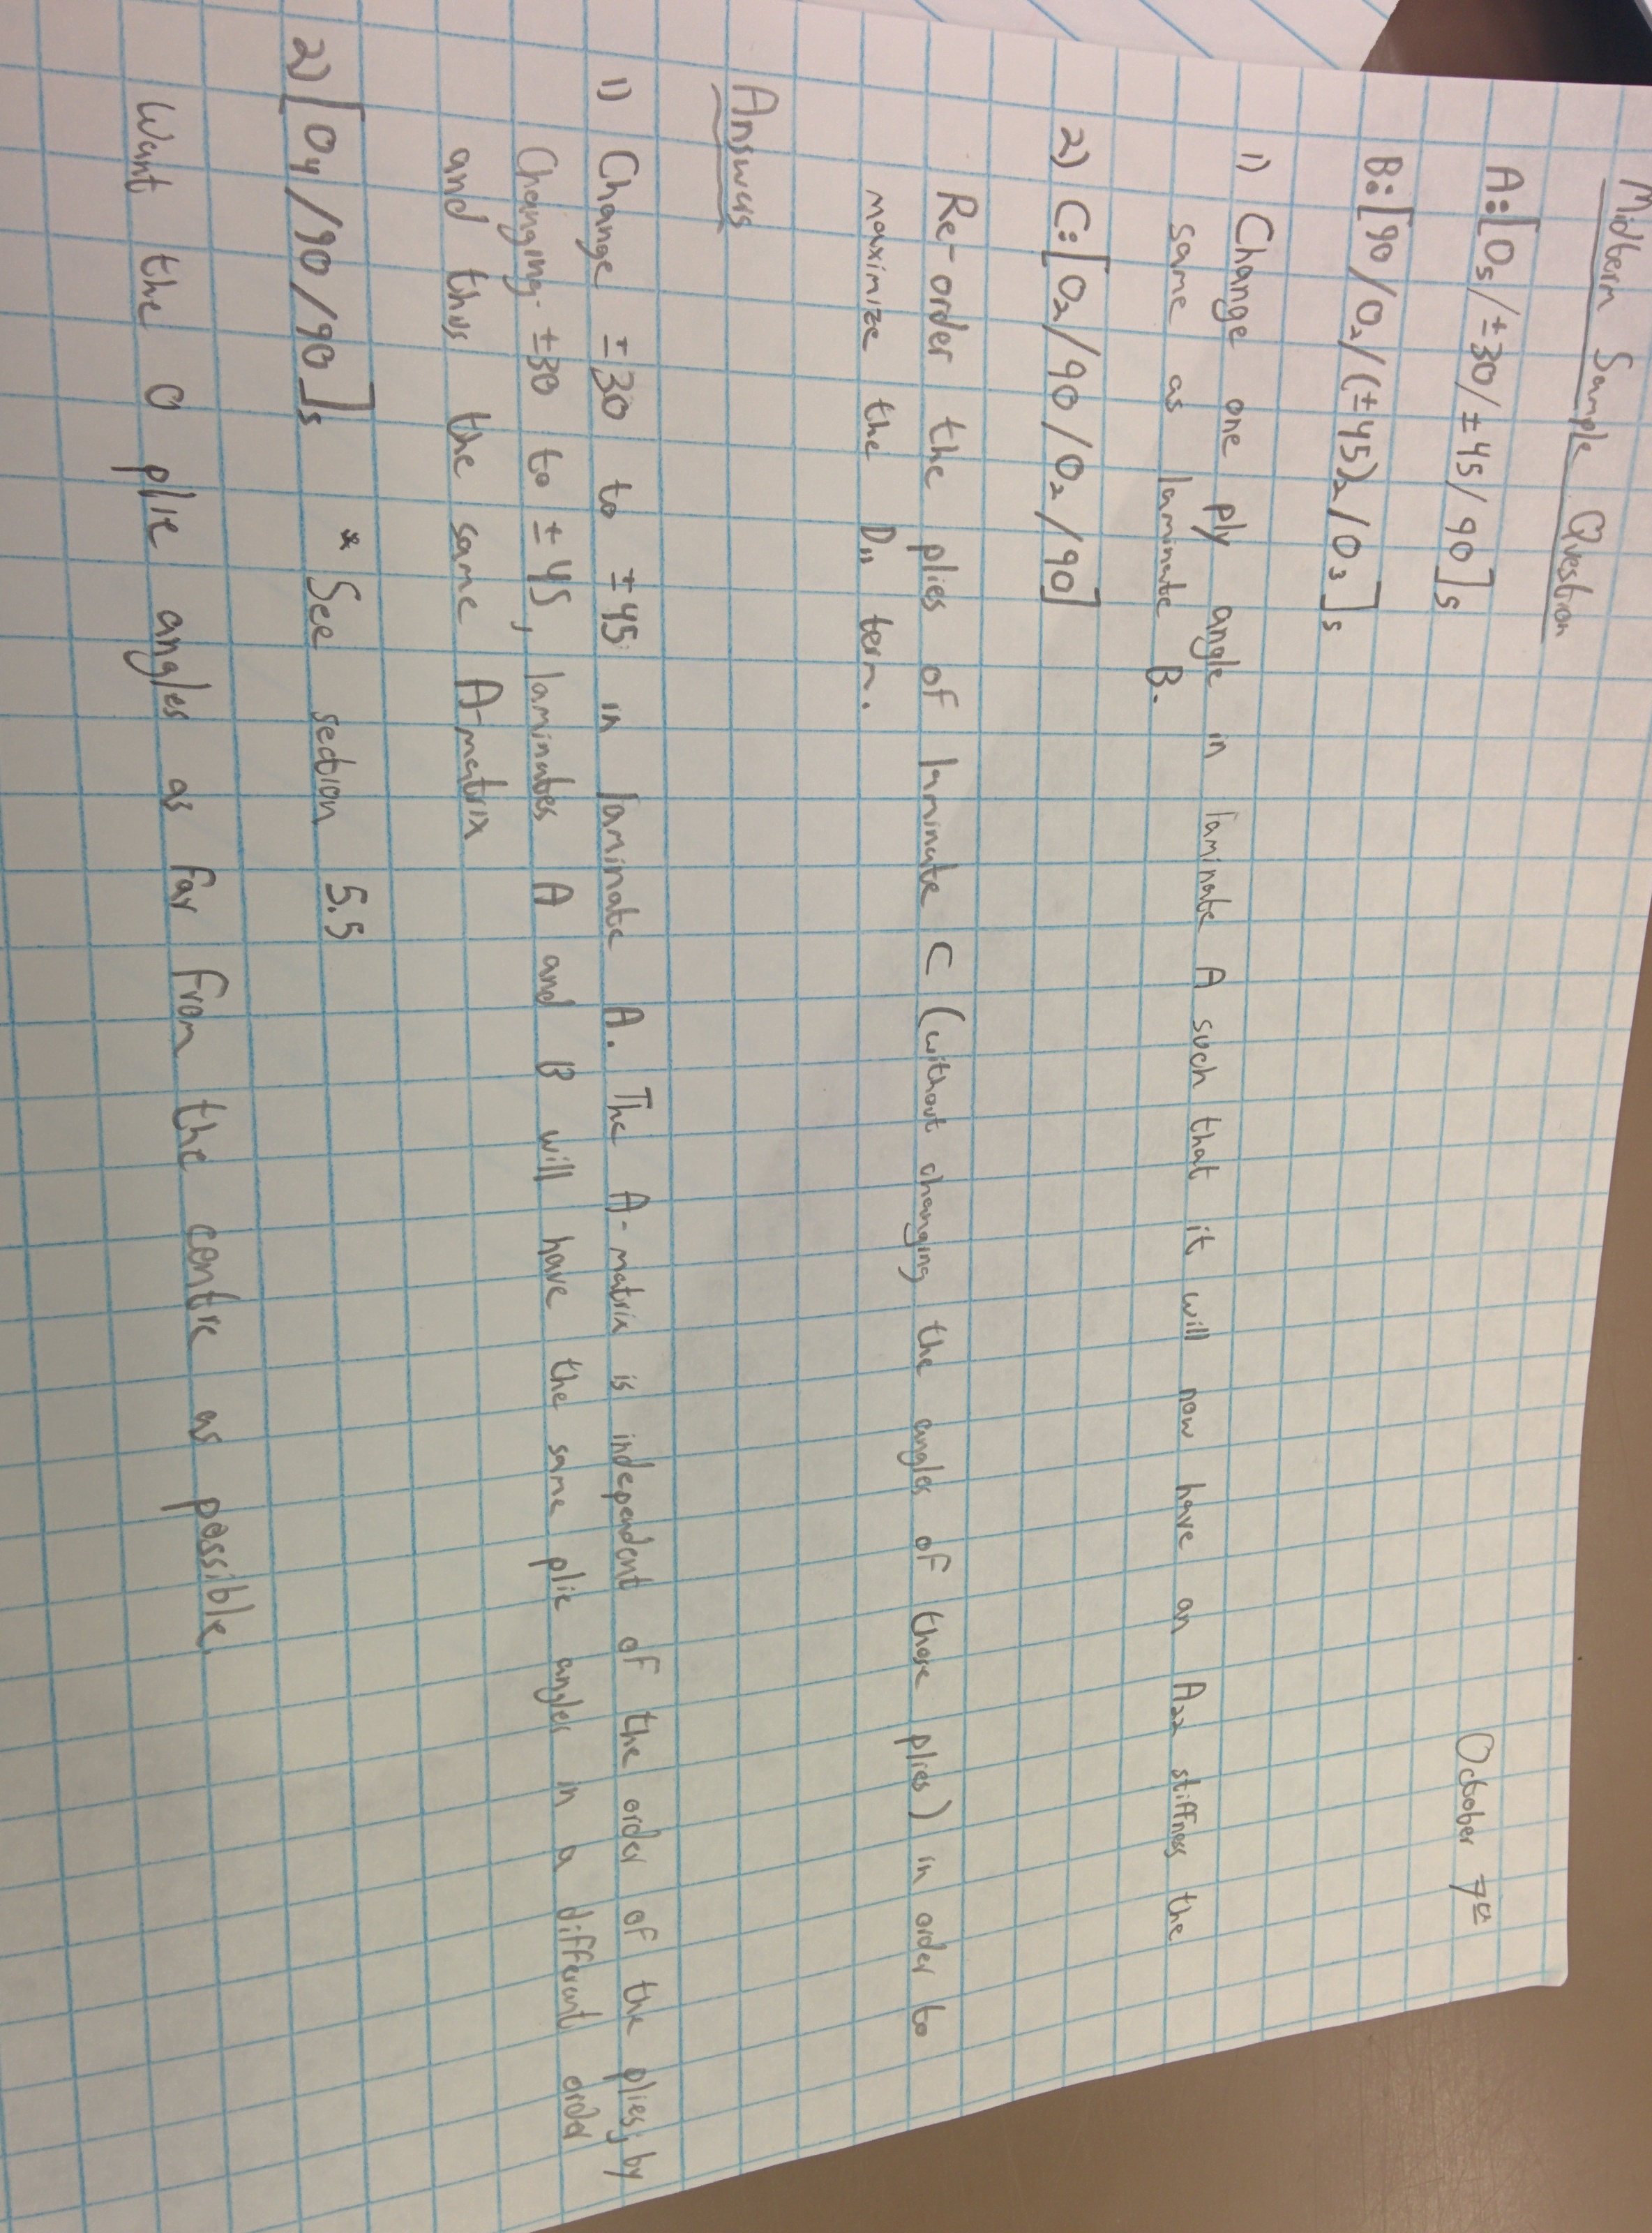 Midterm Sample Question
October 7th
A:[0₅/±30/±45/90]s
B:[90/0₂/(±45)₂/0₃]s
1) Change one ply angle in laminate A such that it will now have an A₂₂ stiffness the
same as laminate B.
2) C:[0₂/90/0₂/90]
Re-order the plies of laminate C (without changing the angles of those plies) in order to
maximize the D₁₁ term.
Answers
1) Change ±30 to ±45 in laminate A. The A-matrix is independent of the order of the plies, by
Changing ±30 to ±45, laminates A and B will have the same plie angles in a different order
and thus the same A-matrix
2) [0₄/90/90]s * See section 5.5
Want the 0 plie angles as far from the centre as possible.